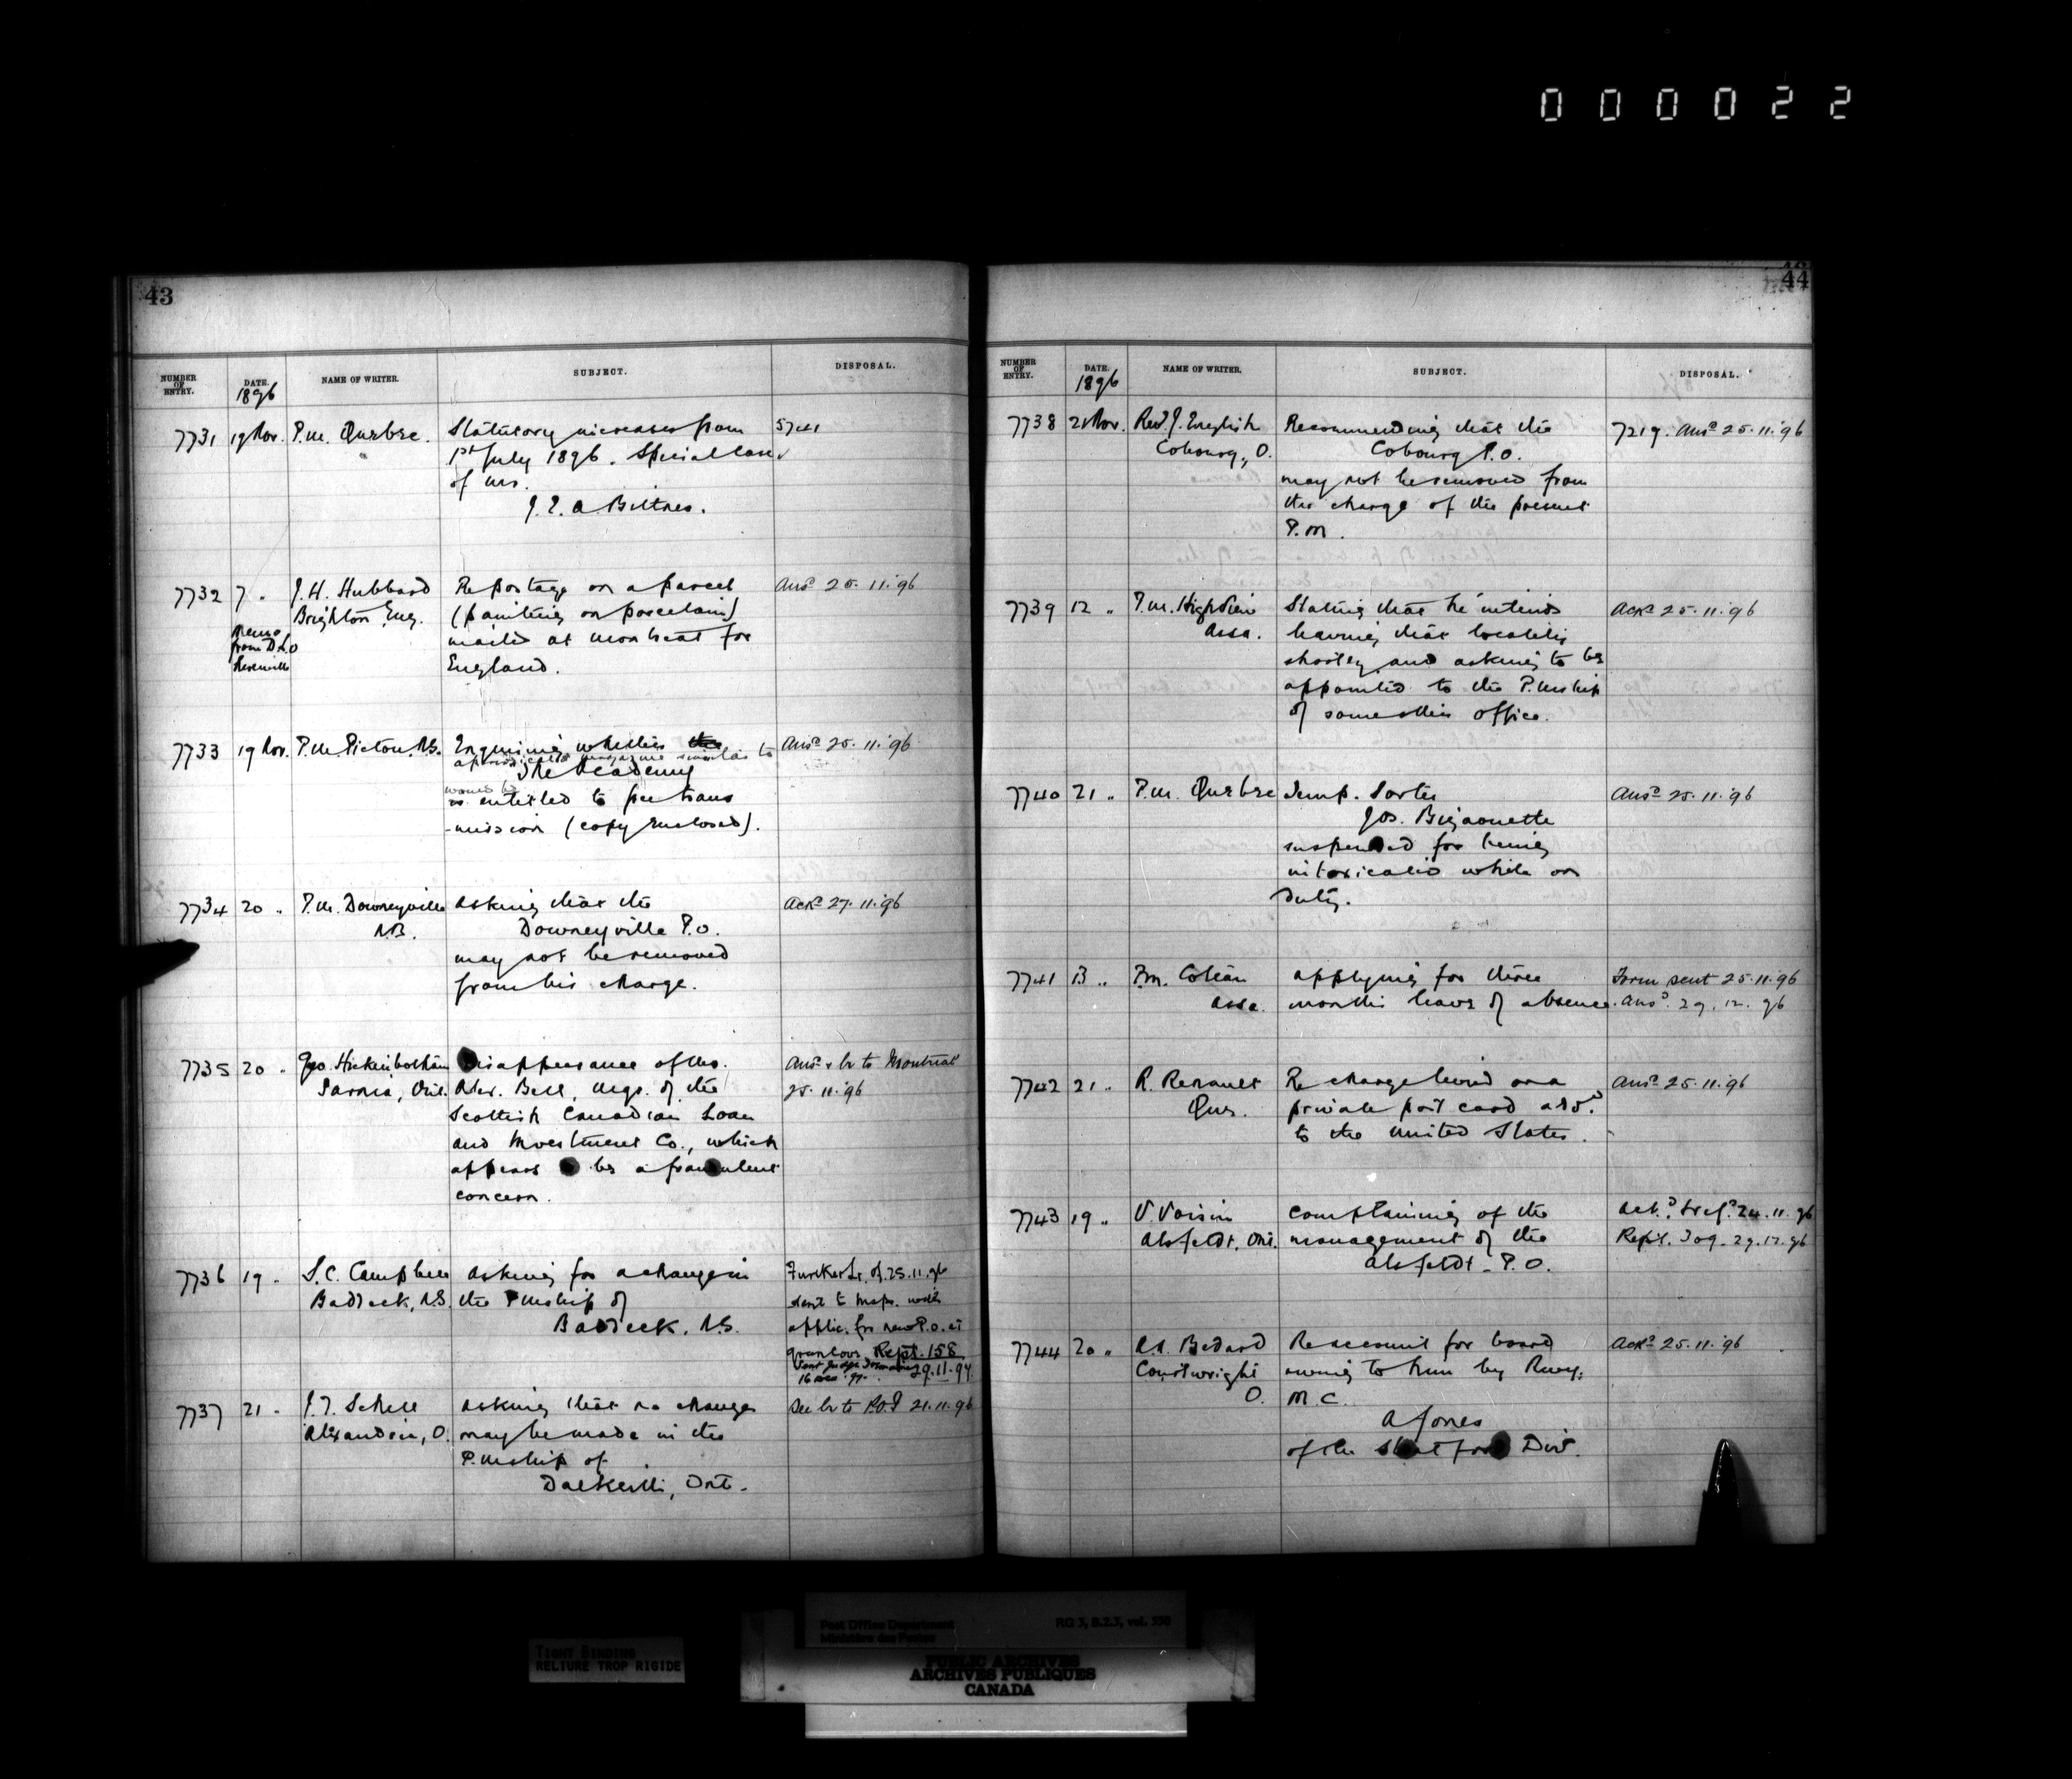 000022
43
NUMBER OF ENTRY. DATE. NAME OF WRITER. SUBJECT. DISPOSAL.
1896
7731 19 Nov. P.M. Quebec. Statutory increases from 5741
1st July 1896. Special case
of Mr.
J. E. A. Bittner.
7732 7 " J. H. Hubbard Re postage on a parcel Ansd 25.11.'96
Brighton Eng. (painting on porcelain)
memo from D.L.O. mailed at Montreal for
England.
7733 19 Nov. P.M. Pictou, N.S. Enquiring whether the Ansd 25.11.'96
a periodical magazine similar to
The Academy
would be
is entitled to free trans
-mission (copy enclosed).
7734 20 " P.M. Downeyville asking that the Ackd 27.11.'96
N.B. Downeyville P.O.
may not be removed
from his charge.
7735 20 " Geo. Hickinbotham Disappearance of Mr. Ansd & lr to Montreal
Sarnia, Ont. Alex. Bell, Mgr. of the 25.11.'96
Scottish Canadian Loan
and Investment Co., which
appears to be a fraudulent
concern.
7736 19 " S. C. Campbell asking for a change in Further lr. of 25.11.96
Baddeck, N.S. the Pmship of sent to Insp. with
Baddeck, N.S. applic. for new P.O. at
Rept. 158
9.11.97
7737 21 " J. T. Schell asking that no change See lr to P.O.I 21.11.96
Alexandria, O. may be made in the
P.mship of
Dalkeith, Ont.
44
NUMBER OF ENTRY. DATE. NAME OF WRITER. SUBJECT. DISPOSAL.
1896
7738 21 Nov. Revd. J. English Recommending that the 7219. Ansd 25.11.'96
Cobourg, O. Cobourg P.O.
may not be removed from
the charge of the present
P.M.
7739 12 " P.M. Highview Stating that he intends Ackd 25.11.'96
Assa. leaving that locality
shortly and asking to be
appointed to the P.mship
of some other office.
7740 21 " P.M. Quebec Temp. Sorter Ansd 25.11.'96
Jos. Bigaouette
suspended for being
intoxicated while on
duty.
7741 13 " P.M. Assa. applying for three Form sent 25.11.96
months leave of absence. Ansd. 29.12.96
7742 21 " R. Renault Re charge levied on a Ansd 25.11.'96
Que. private post card addd.
to the United States.
7743 19 " V. Voisin complaining of the Ackd. & refd. 24.11.96
Alsfeldt, Ont. management of the Rept. 309. 29.12.96
Alsfeldt P.O.
7744 20 " Bedard Re account for board Ackd 25.11.'96
Courtwright owing to him by Rwy.
O. M.C.
A Jones
of the Stratford Divn.
TIGHT BINDING
RELIURE TROP RIGIDE
Post Office Department RG 3, B.2.3, vol. 330
Ministère des Postes
PUBLIC ARCHIVES
ARCHIVES PUBLIQUES
CANADA